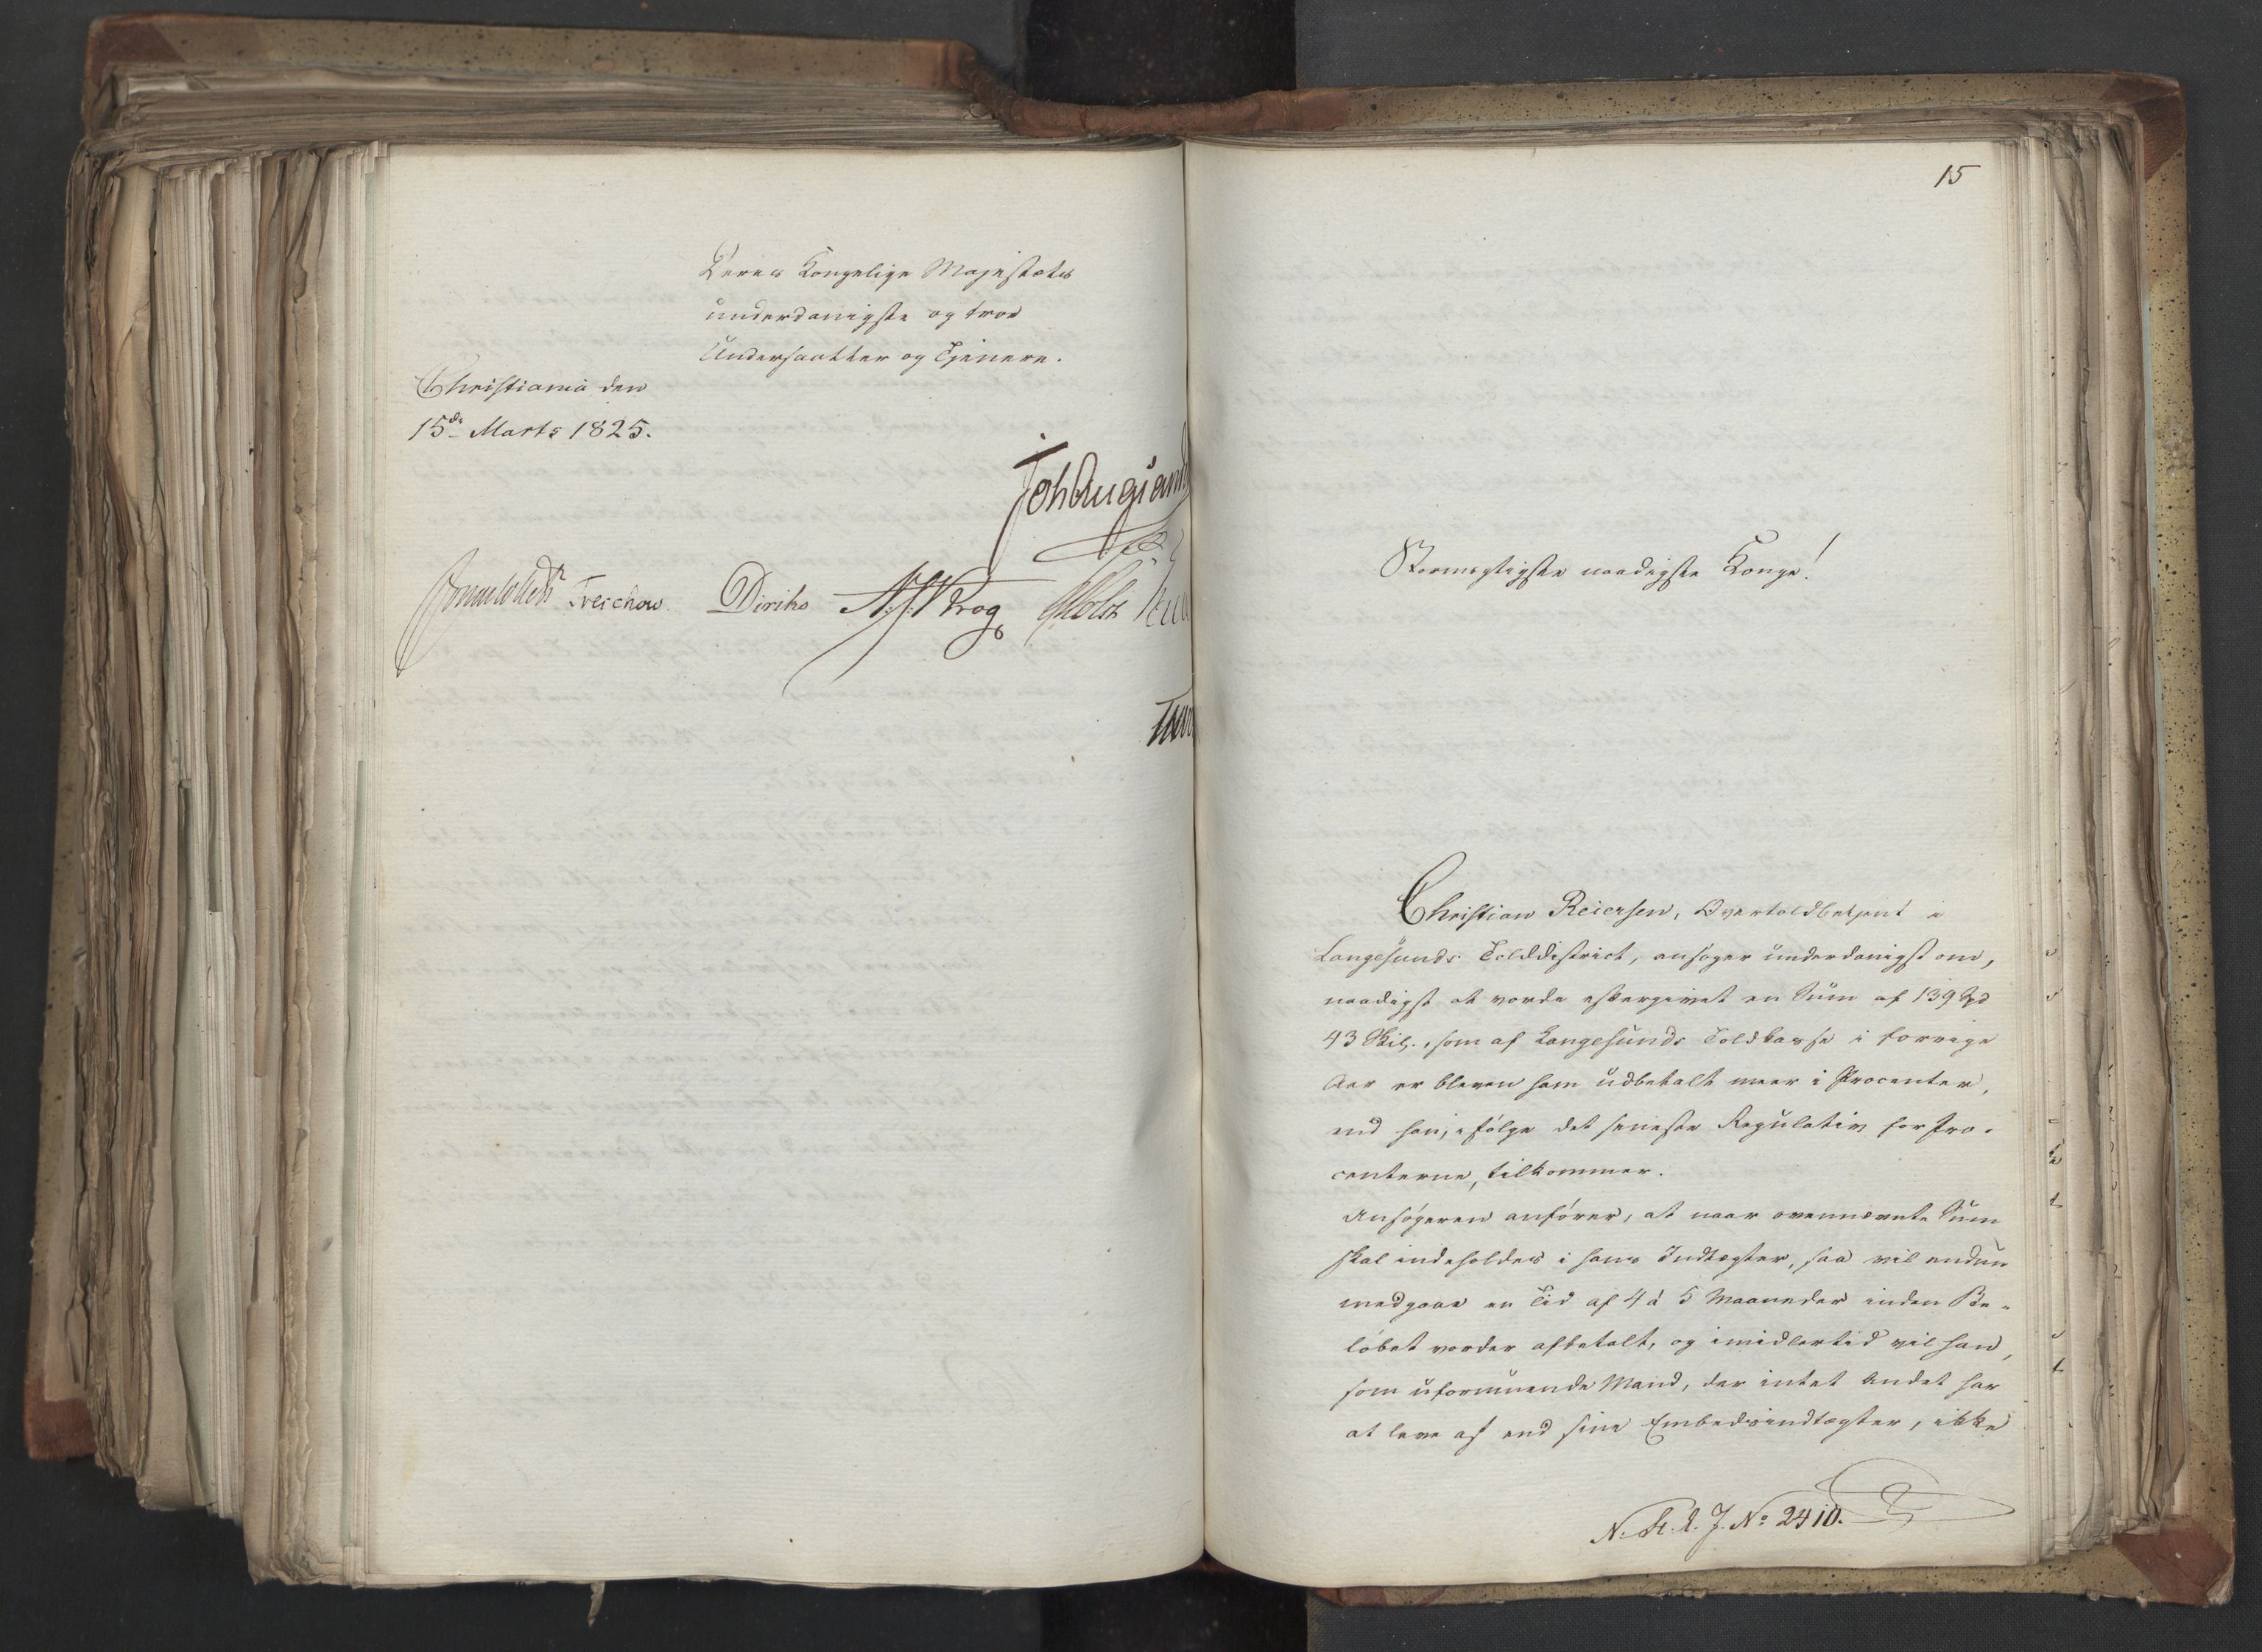 Deres Kongelige Majestæts
underdanigste og troe
Undersaatter og Tjenere.
Christiania den
15de Marts 1825.
Joh Aug Sand
Sommerhielm Treschow Diriks A.J. Krog Holst
15
Stormægtigste naadigste Konge!
Christian Reiersen, Overtoldbetjent i
Langesunds Tolddistrict, ansøger underdanigst om,
naadigst at vorde eftergivet en Sum af 139 Spd
43 Skil., som af Langesunds Toldkasse i forrige
Aar er bleven ham udbetalt meer i Procenter,
end han, ifølge det seneste Regulativ for Pro-
centerne, tilkommer.
Ansøgeren anfører, at naar ovennævnte Sum
skal indeholdes i hans Indtægter, saa vil endnu
medgaae en Tid af 4 à 5 Maaneder inden Be-
løbet vorder afbetalt, og imidlertid vil han,
som uformuende Mand, der intet Andet har
at leve af end sine Embedsindtægter, ikke
N. St. R. J. No 2410.